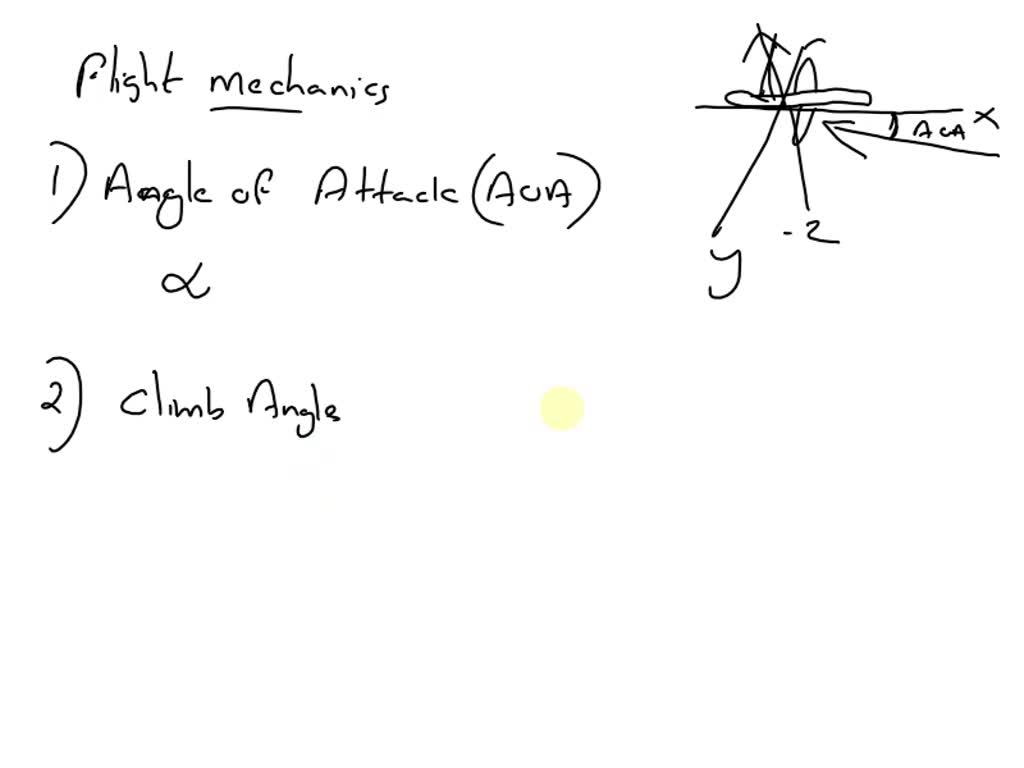 Flight mechanics
1) Angle of Attack (AOA)
α
2) Climb Angle
AOA X
-Z
y